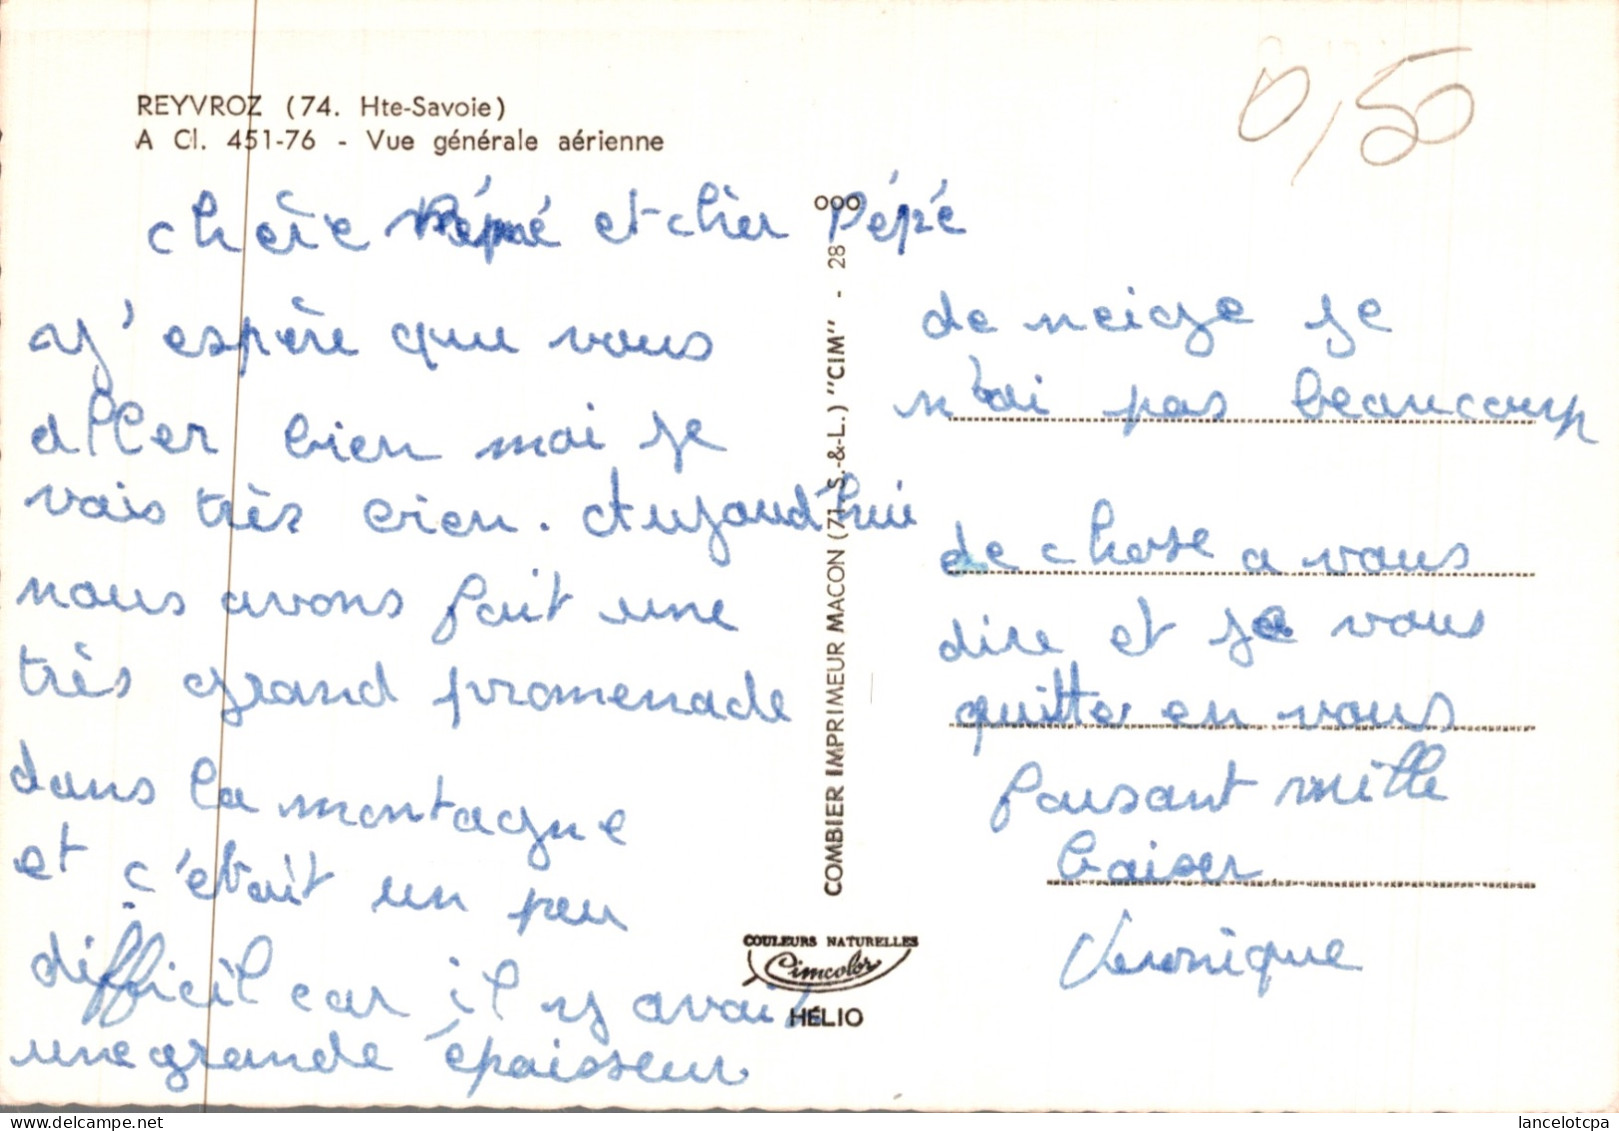 REYVROZ (74. Hte-Savoie)
A Cl. 451-76 - Vue générale aérienne
0,50
chère Mémé et cher Pépé
J'espère que vous
aller bien moi je
vais très bien. Aujourd'hui
nous avons fait une
très grand promenade
dans la montagne
et c'était un peu
difficil car il y avait
une grande épaisseur
COMBIER IMPRIMEUR MACON (71. S.-&-L.) "CIM" - 28
000
COULEURS NATURELLES
Cimcolor
HÉLIO
de neige je
n'ai pas beaucoup
de chose a vous
dire et je vous
quitte en vous
faisant mille
baiser
Veronique
www.lancelotcpa.com - lancelotcpa